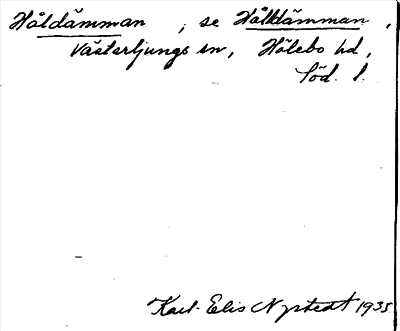 Håldämman, se Hålldämman,
Västerljungs sn, Hölebo hd,
Söd. l.
Karl-Elis Nystedt 1935